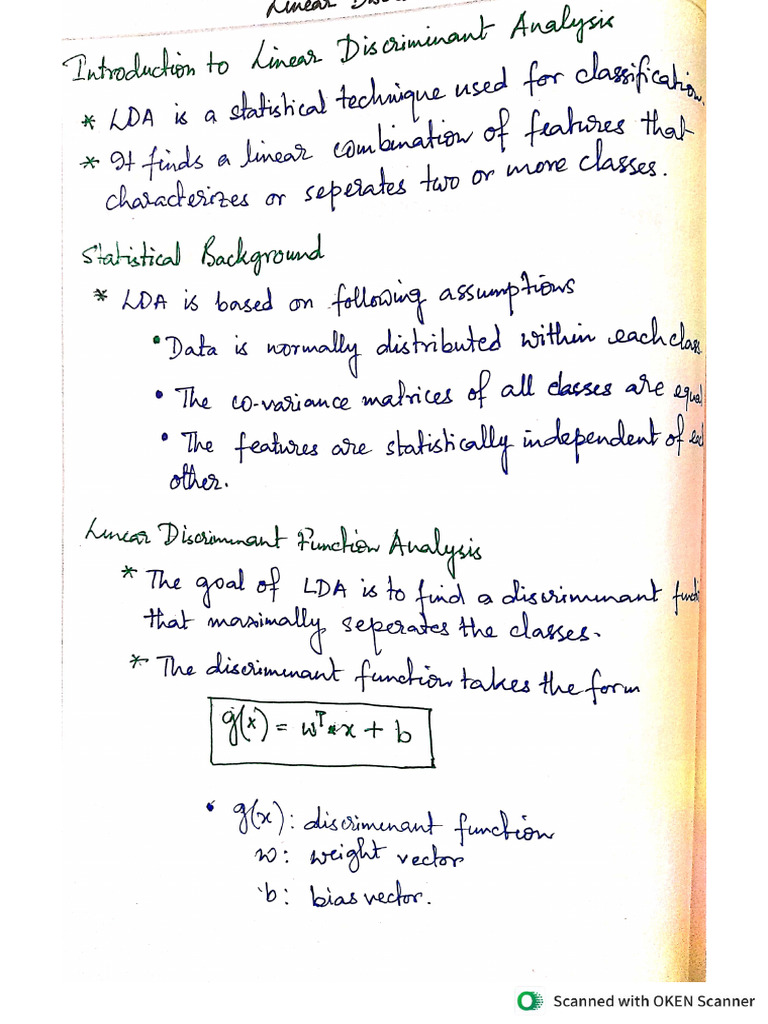 Linear Disc
Introduction to Linear Discriminant Analysis
* LDA is a statistical technique used for classification.
* It finds a linear combination of features that
characterizes or seperates two or more classes.
Statistical Background
* LDA is based on following assumptions
• Data is normally distributed within each class
• The co-variance matrices of all classes are equal
• The features are statistically independent of each
other.
Linear Discriminant Function Analysis
* The goal of LDA is to find a discriminant functi
that maximally seperates the classes.
* The discriminant function takes the form
g(x) = wᵀ*x + b
• g(x): discriminant function
w: weight vector
b: bias vector.
Scanned with OKEN Scanner